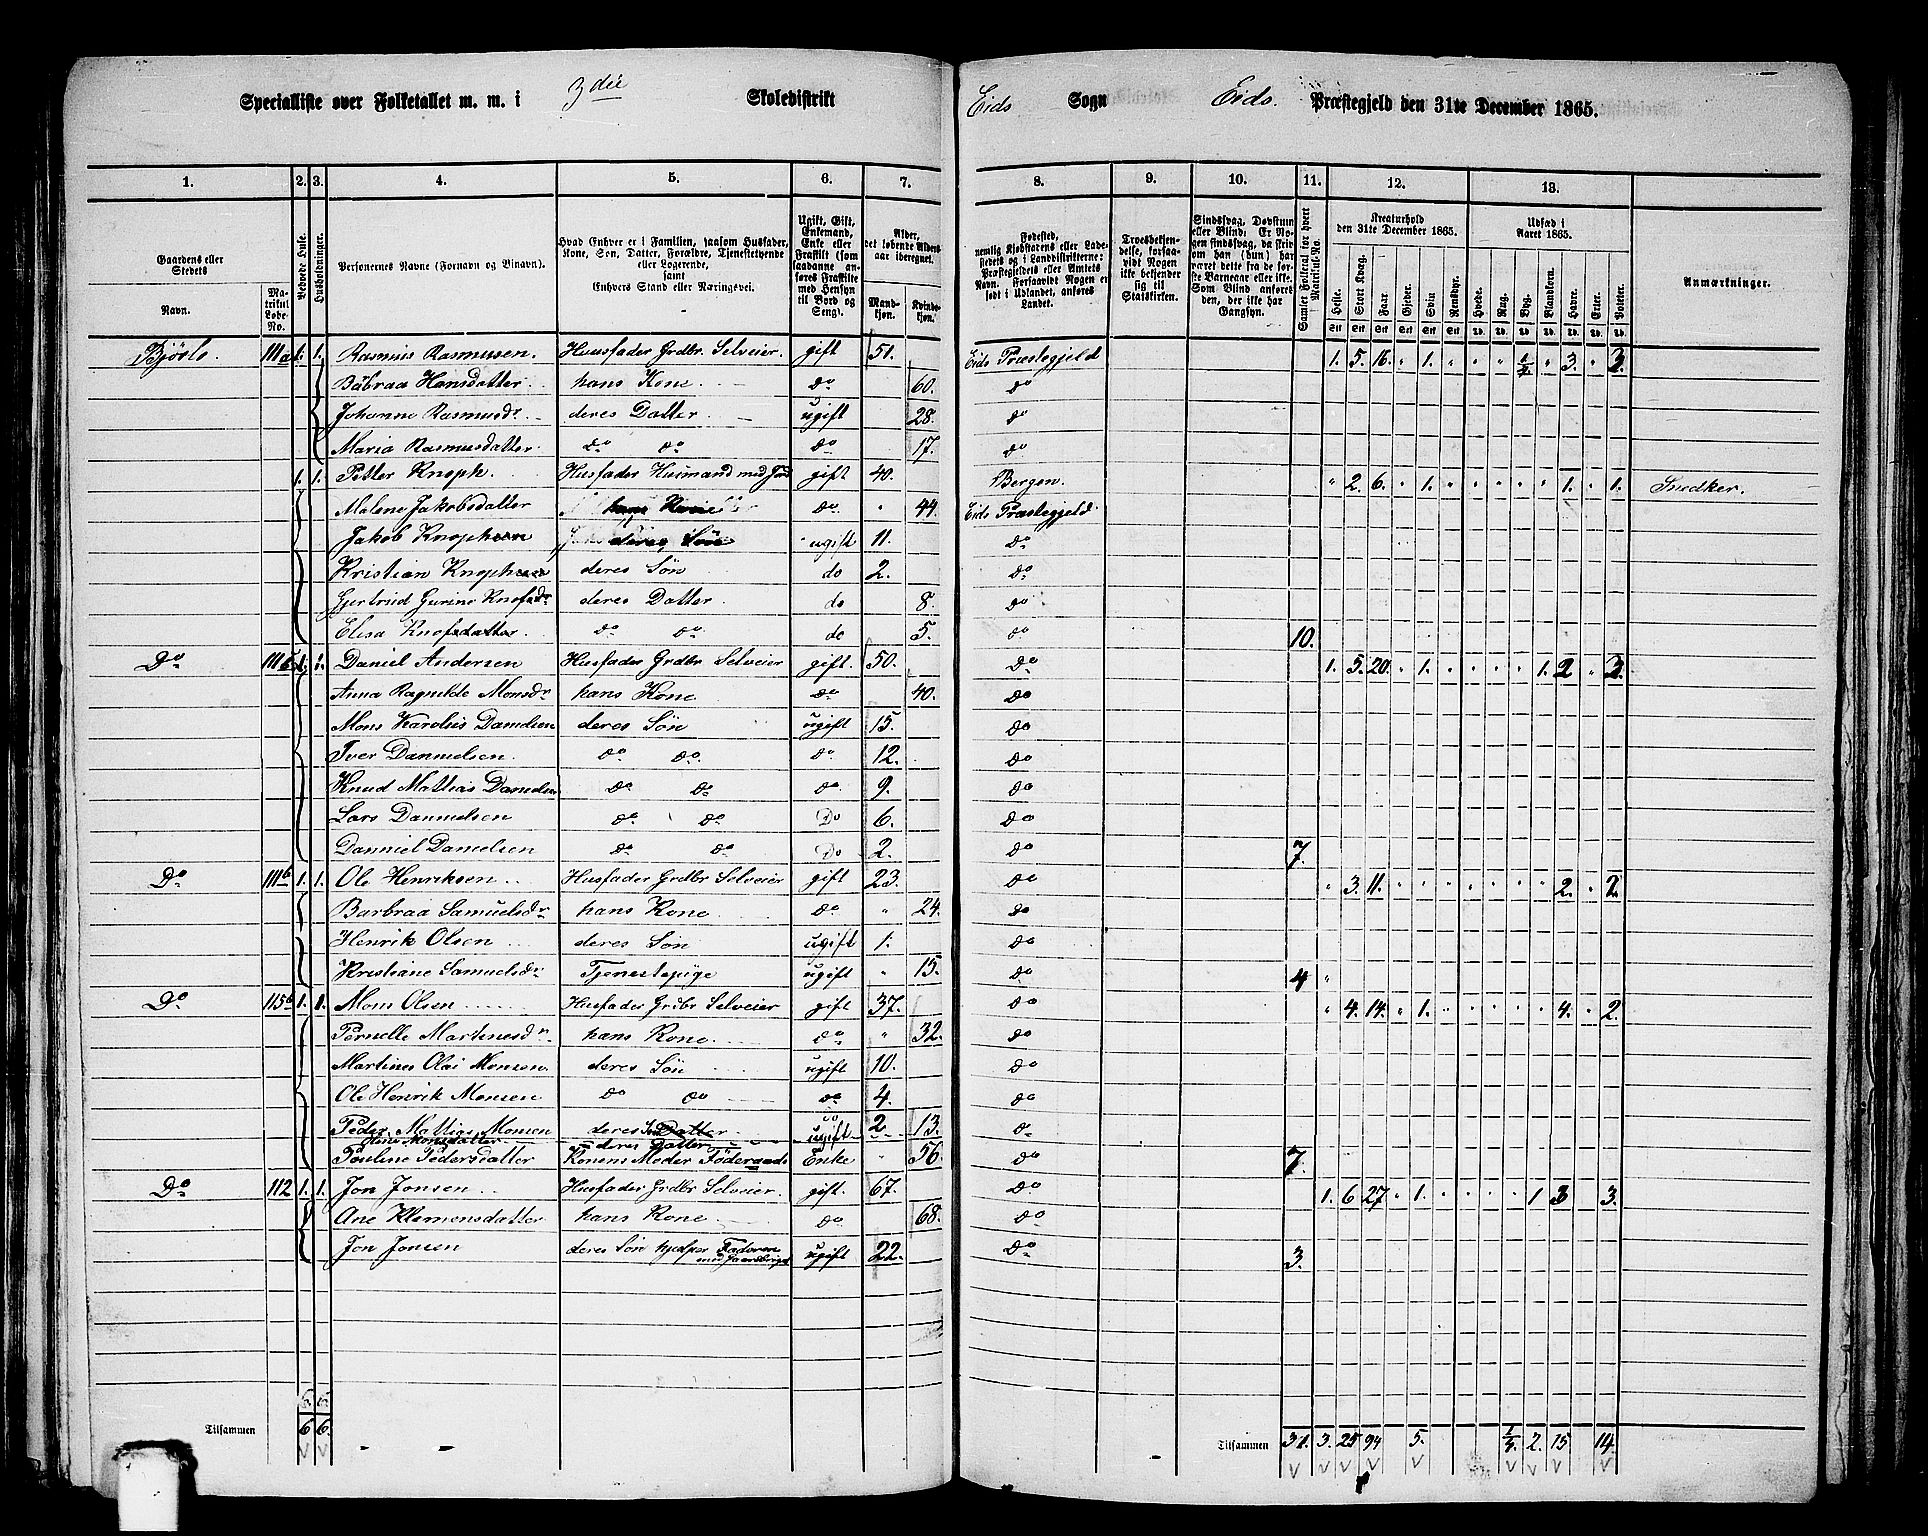 Specialliste over Folketallet m. m. i 3die Skoledistrikt Eids Sogn Eids. Præstegjeld den 31te December 1865.
1. 2. 3. 4. 5. 6. 7. 8. 9. 10. 11. 12. 13.
Gaardens eller Stedets Navn. Matrikul Løbe-No. Beboede Huse. Husholdninger. Personernes Navne (Fornavn og Binavn). Hvad Enhver er i Familien, saasom Husfader, Kone, Søn, Datter, Forældre, Tjenestetyende eller Logerende, samt Enhvers Stand eller Næringsvei. Ugift, Gift, Enkemand, Enke eller Fraskilt (som saadanne anføres Fraskilte med Hensyn til Bord og Seng). Alder, det løbende Alders-aar iberegnet. Mandkjøn. Kvindekjøn.
Fødested, nemlig Kjøbstadens eller Ladestedets og i Landdistrikterne: Præstegjeldets eller Amtets Navn. Forsaavidt Nogen er født i Udlandet, anføres Landet. Troesbekjendelse, forsaavidt Nogen ikke bekjender sig til Statskirken. Sindssvag, Døvstum eller Blind: Er Nogen sindssvag, da skrives om han (hun) har været dette fra de første Barneaar eller ikke. Som Blind anføres den, der ikke har Gangsyn. Samlet Folketal for hvert Matrikul-No. Kreaturhold den 31te December 1865. Udsæd i Aaret 1865. Anmærkninger.
Heste. Stort Kvæg. Faar. Gjeder. Svin. Rensdyr. Hvede. Rug. Byg. Blandkorn. Havre. Erter. Poteter.
Bjørlo. 111a 1. 1. Rasmus Rasmusen. Huusfader Grdbr Selveier. gift 51. Eids Præstegjeld 1. 5. 16. " 1. " " " 1/2 " 3. " 3.
Bábraa Hansdatter hans Kone do 60. do
Johanne Rasmusdr. deres Datter ugift 28. do
Maria Rasmusdatter do do do 17. do
1. 1. Petter Knoph. Husfader Husmand med Jord gift 40. Bergen. " 2. 6. " 1. " " " " " 1. " 1. Snedker.
Malene Jakobsdatter hans Kone do. " 44. Eids Præstegjeld
Jakob Knophsen deres Søn ugift 11. do
Kristian Knophsen deres Søn do 2. do
Gjertrud Gurine Knofsdr deres Datter do 8. do
Elisa Knofsdatter. do do. do 5. do 10.
Do 111 1. 1. Daniel Andersen Husfader Grdbr Selveier gift. 50. do 1. 5. 20. " 1. " " " " 1. 2 " 3.
Anna Ragnilde Monsdr hans Kone do 40. do
Mons Karolus Danielsen deres Søn ugift 15. do
Iver Dannielsen do do. do. 12. do
Knud Mattias Danielsen do do do. 9. do
Lars Dannielsen do do Do 6. do
Danniel Danielsen do do Do 2. do 7.
Do 111b 1. 1. Ole Henriksen Husfader Grdbr Selveier gift 23. do " 3. 11. " " " " " " " 2. " 2.
Barbraa Samuelsdr hans Kone. do " 24. do
Henrik Olsen deres Søn ugift 1. do
Kristiane Samuelsdr Tjenestepige ugift " 15. do 4 "
Do 115b 1. 1. Mons Olsen Husfader Grdbr Selveier gift 37. do " 4. 14. " 1. " " " " " 4. " 2.
Pernelle Martinesdr hans Kone. do " 32. do
Martines Olai Monsen deres Søn ugift 10. do
Ole Henrik Monsen do do do 4. do
Peder Mattias Monsen deres Søn do 2 d.
Oline Monsdatter deres Datter ugift 13.
Pauline Pedersdatter Konens Moder Föderaads Enke " 56. do 7.
Do 112 1. 1. Jon Jonsen Husfader Grdbr Selveier. gift. 67. do 1. 6 27 " 1. " " " " 1 3 " 3.
Ane Klemensdatter hans Kone do 68. do
Jon Jonsen deres Søn hjelper Faderen med Gaardsbruget ugift 22. do 3.
5. 5.
Tilsammen 6 6 Tilsammen 31. 3. 25 94 5. 1/2 2. 15 14.